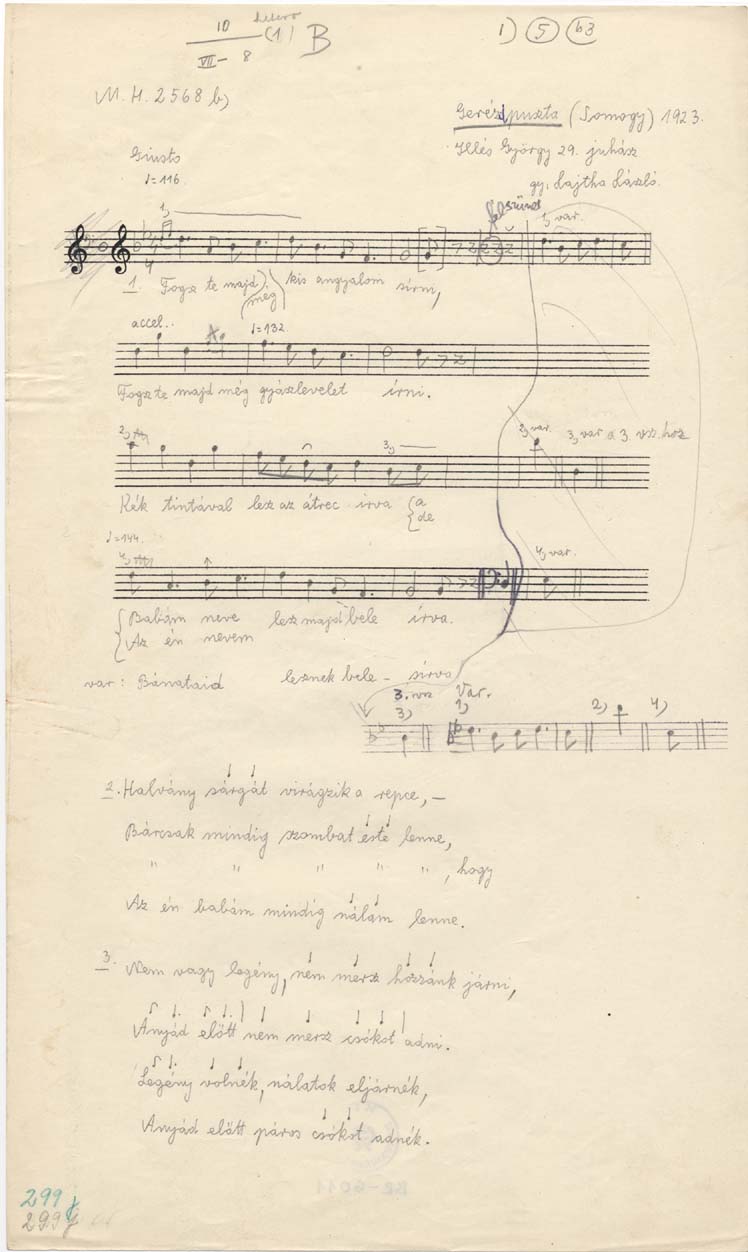 10 (1) B
VII- 8
1) 5 63
M.H. 2568 b)
Gerézdpuszta (Somogy) 1923.
Illés György 29. juhász
gy. Lajtha László.
Giusto
♩=116.
1) 1) var.
1. Fogsz te majd (még) kis angyalom sírni,
accel.. ♩=132.
Fogsz te majd még gyászlevelet írni.
2) 3) 2) var. 3) var a 3. vsz.hoz
Kék tintával lesz az átrec írva {a
de
♩=144.
4) 4) var.
{Babám neve lesz majd bele írva.
{Az én nevem
var: Bánataid lesznek bele - sírva
3. vsz Var.
3) 1) 2) 4)
2. Halvány sárgát virágzik a repce, —
Bárcsak mindig szombat este lenne,
" " " " " , hogy
Az én babám mindig nálam lenne.
3. Nem vagy legény, nem mersz hozzánk járni,
Anyád előtt nem mersz csókot adni.
Legény volnék, nálatok eljárnék,
Anyád előtt páros csókot adnék.
299 j
299 j